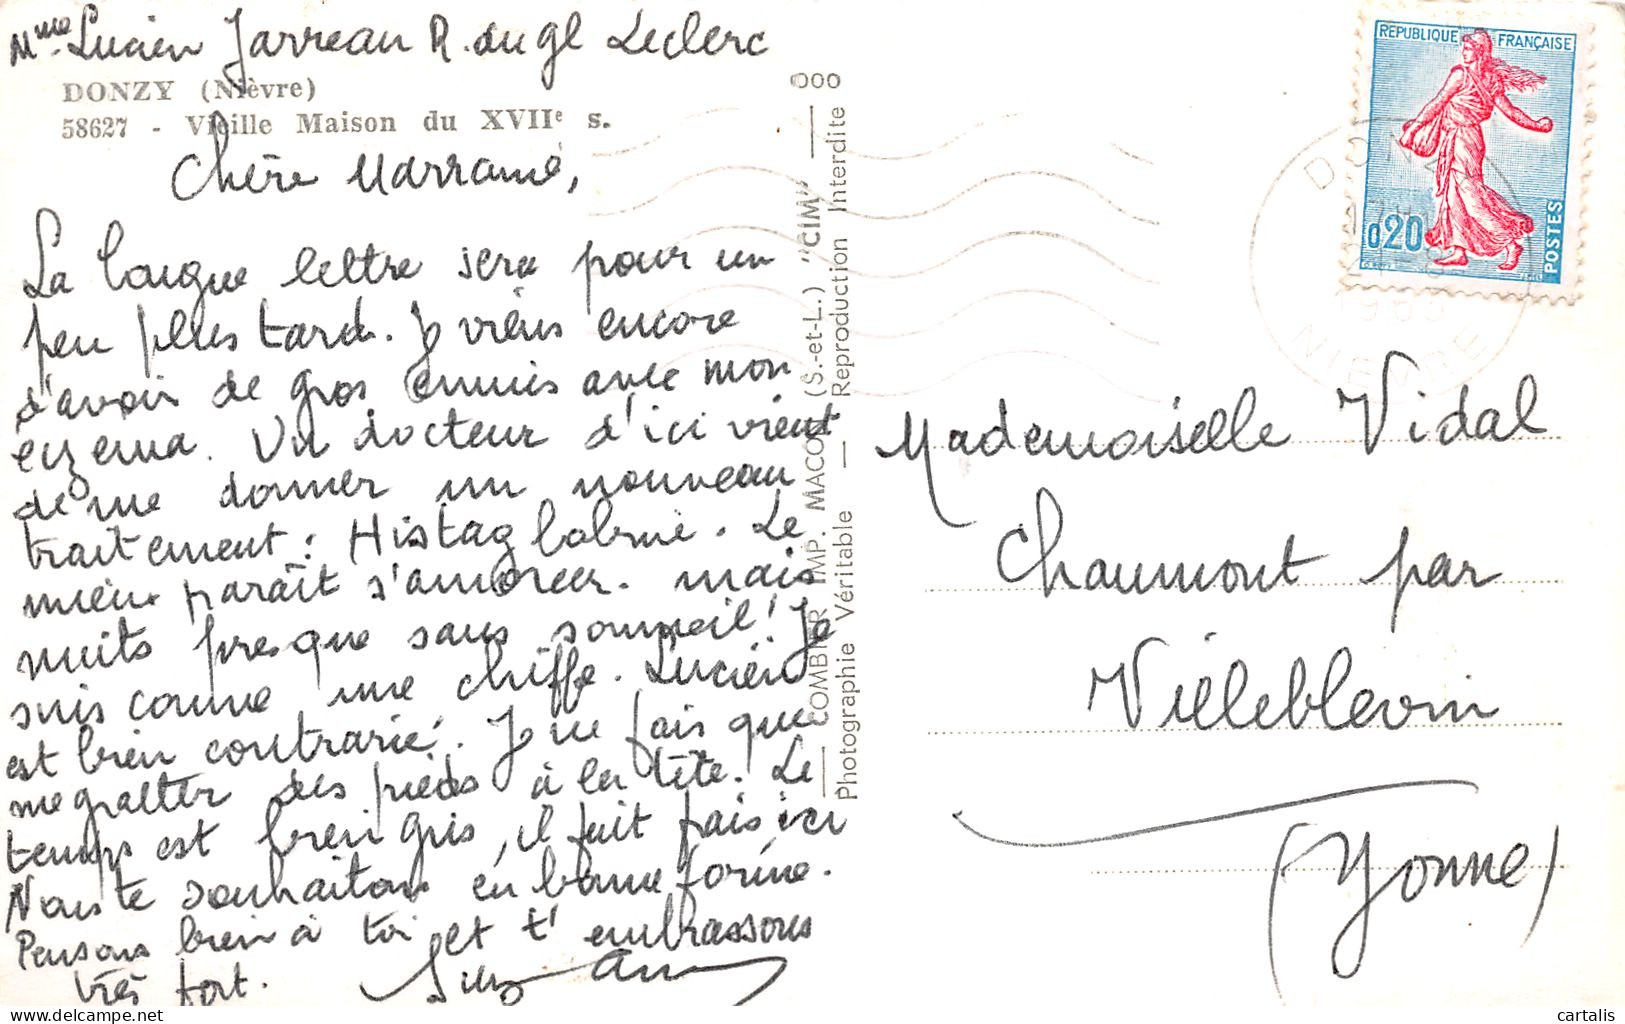 Mme Lucien Jarreau R. du gl Leclerc
DONZY (Nièvre)
58627 - Vieille Maison du XVIIe s.
Chère Marraine,
La longue lettre sera pour un
peu plus tard. Je viens encore
d'avoir de gros ennuis avec mon
eczema. Un docteur d'ici vient
de me donner un nouveau
traitement : Histaglobine. Le
mieux paraît s'amorcer. mais
nuits presque sans sommeil! Je
suis comme une chiffe. Lucien
est bien contrarié. Je ne fais que
me gratter des pieds à la tête. Le
temps est bien gris, il fait frais ici
Nous te souhaitons en bonne forme.
Pensons bien à toi et t'embrassons
très fort.
COMBIER IMP. MACON (S.-et-L.) "CIM"
Photographie Véritable — Reproduction Interdite
REPUBLIQUE FRANÇAISE
0,20
POSTES
DONZY
NIEVRE
Mademoiselle Vidal
Chaumont par
Villeblevin
(Yonne)
cartalis